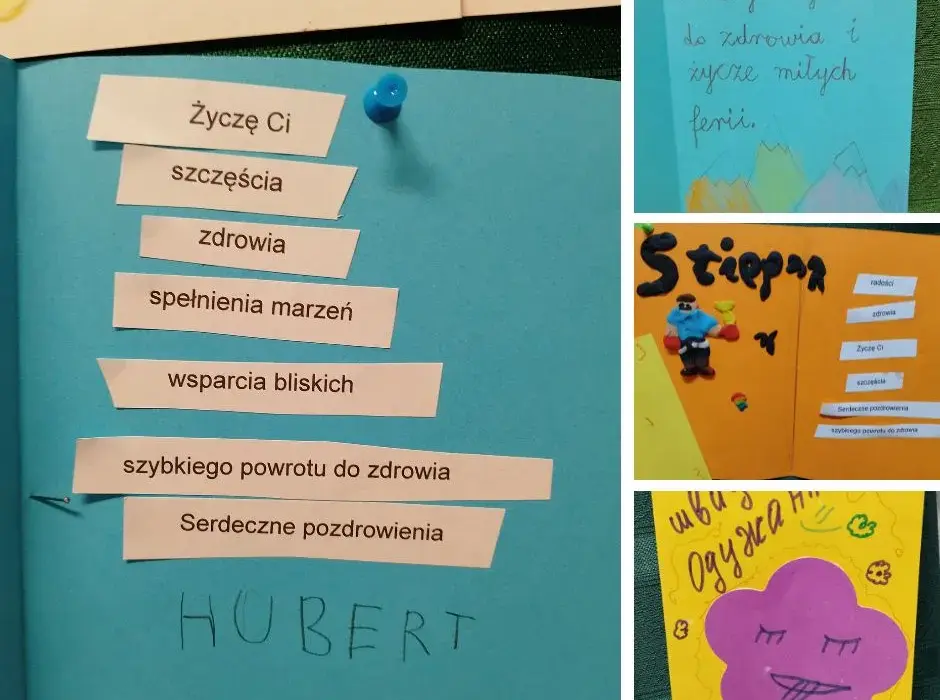 Życzę Ci
szczęścia
zdrowia
spełnienia marzeń
wsparcia bliskich
szybkiego powrotu do zdrowia
Serdeczne pozdrowienia
HUBERT
do zdrowia i
życzę miłych
ferii.
radości
zdrowia
Życzę Ci
szczęścia
Serdeczne pozdrowienia
szybkiego powrotu do zdrowia